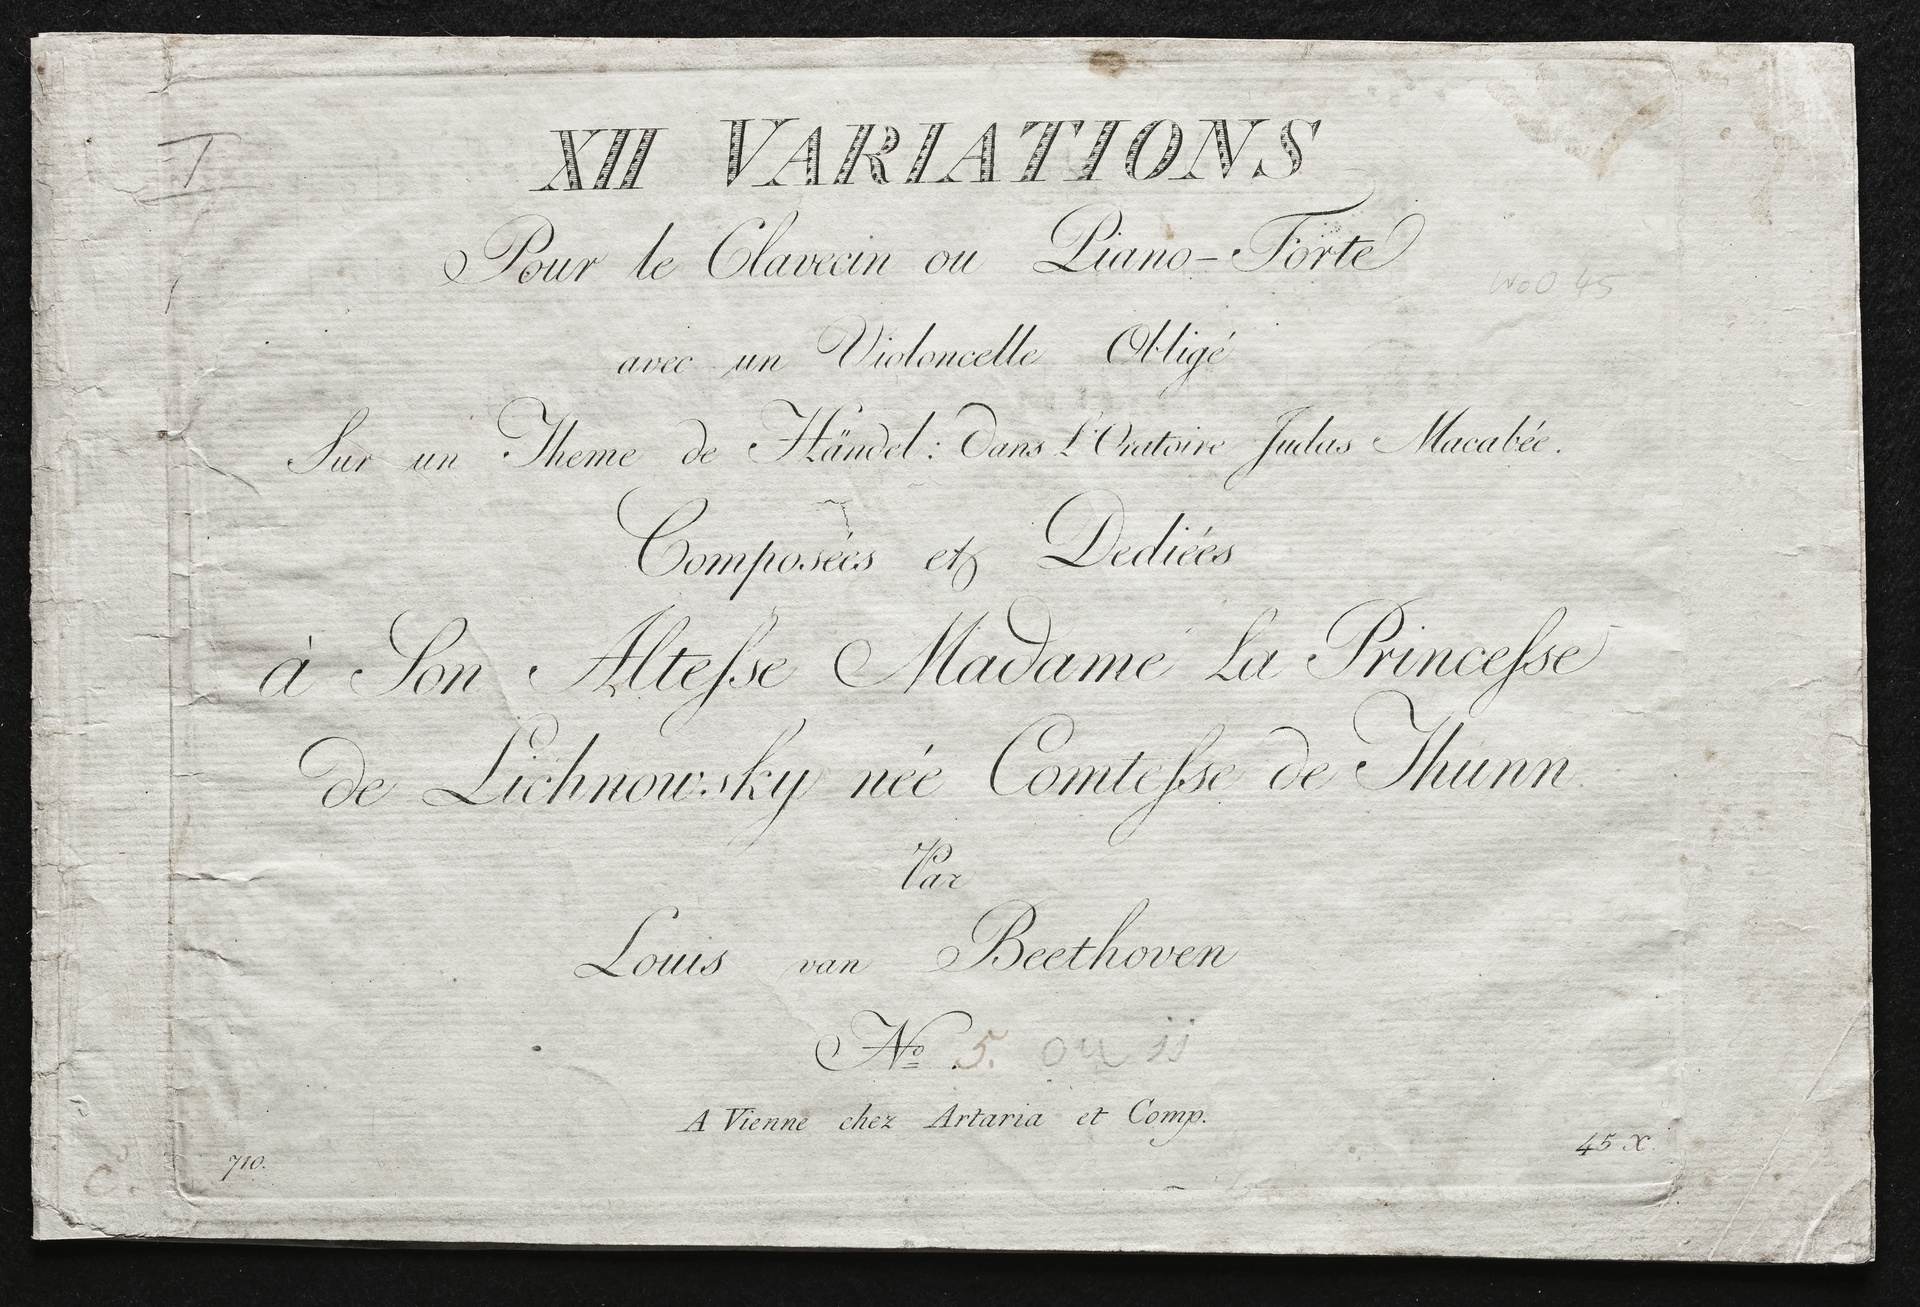 XII VARIATIONS
Pour le Clavecin ou Piano-Forte
WoO 45
avec un Violoncelle Obligé
Sur un Theme de Händel: dans l'Oratoire Judas Macabée.
Composées et Dediées
à Son Altesse Madame la Princesse
de Lichnowsky née Comtesse de Thunn
Par
Louis van Beethoven
No 5. ou 11
A Vienne chez Artaria et Comp.
710.
45 x.
C.